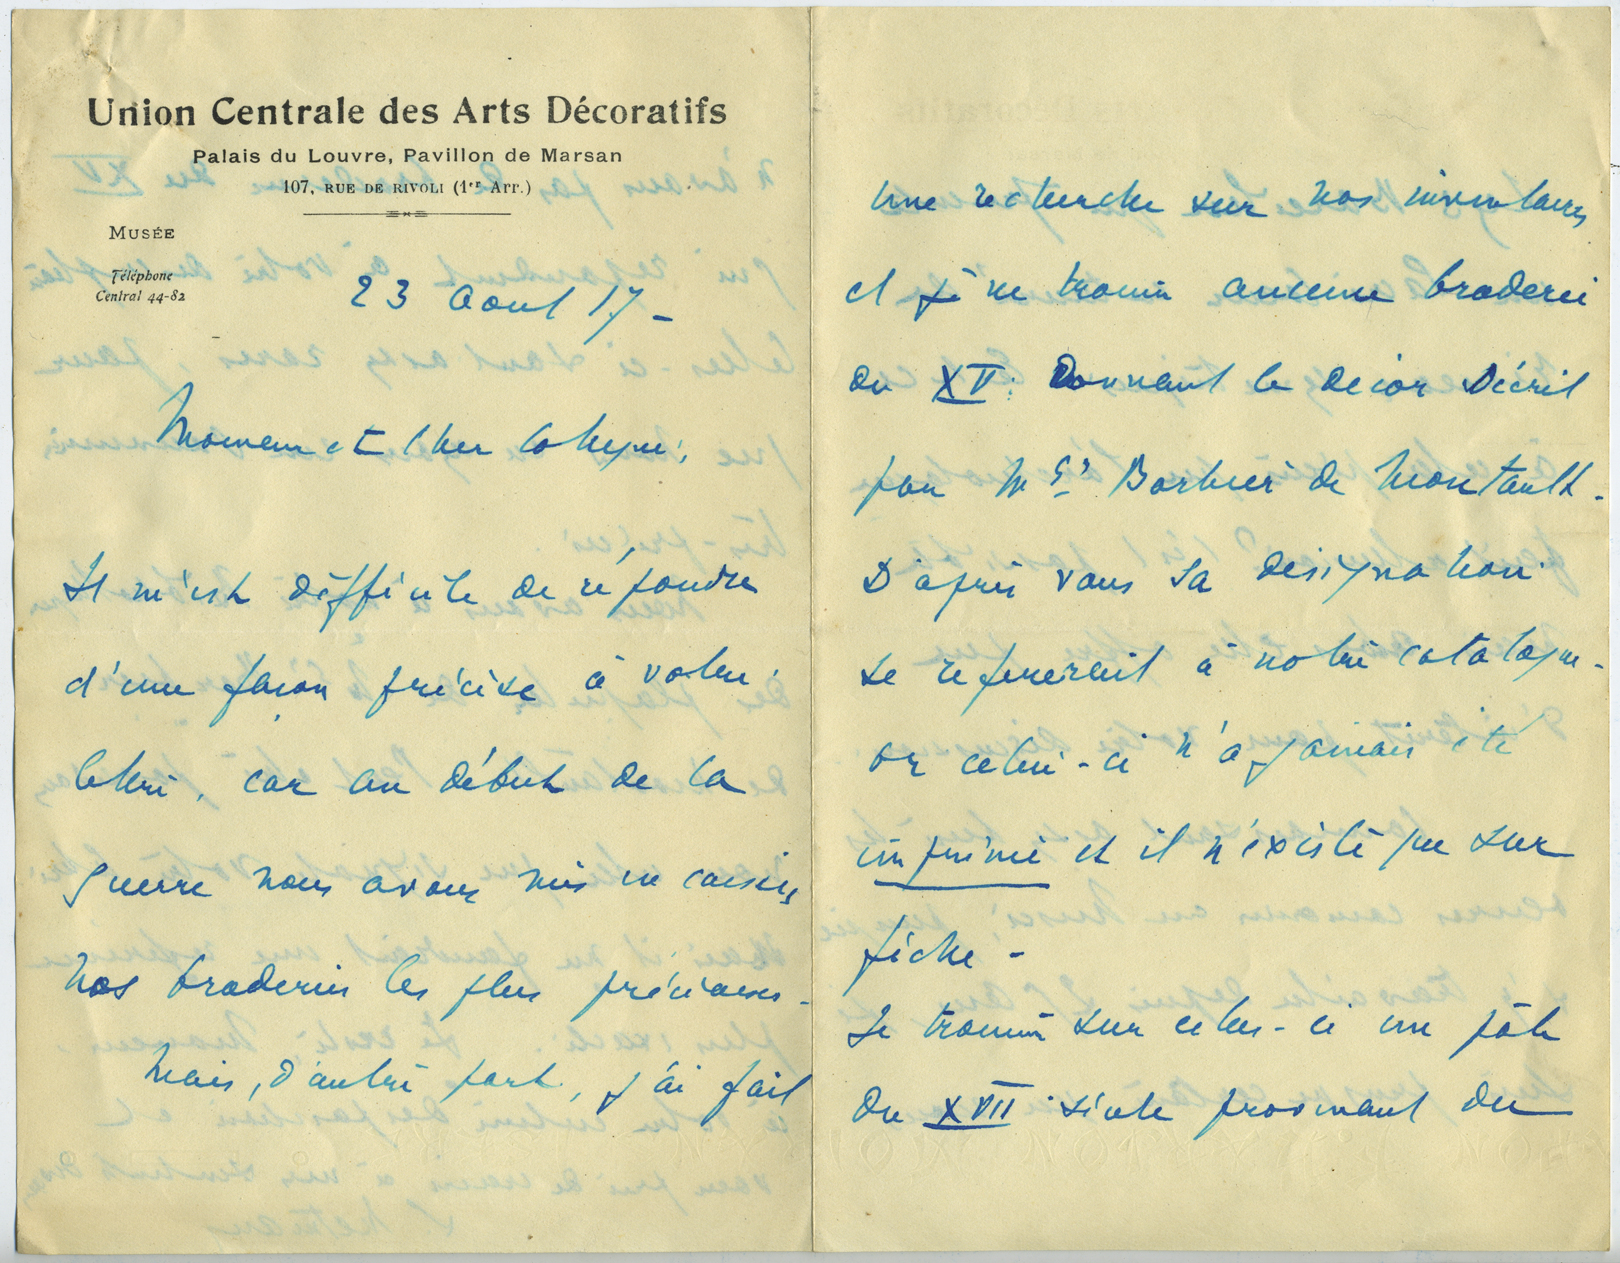 Union Centrale des Arts Décoratifs
Palais du Louvre, Pavillon de Marsan
107, RUE DE RIVOLI (1er Arr.)
MUSÉE
Téléphone
Central 44-82
23 Aout 17 -
Monsieur et cher collegue,
Il m'est difficile de répondre
d'une façon précise à votre
lettre, car au début de la
guerre nous avons mis en caisses
nos broderies les plus précieuses -
Mais, d'autre part, j'ai fait
une recherche sur nos inventaires
et je ne trouve aucune broderie
du XV. Donnant le decor Décrit
par Mgr Barbier de Montault -
D'après vous sa designation
se refererait à notre catalogue -
or celui-ci n'a jamais été
imprimé et il n'existe que sur
fiche -
Je trouve sur celles-ci un pale
du XVII siecle provenant du